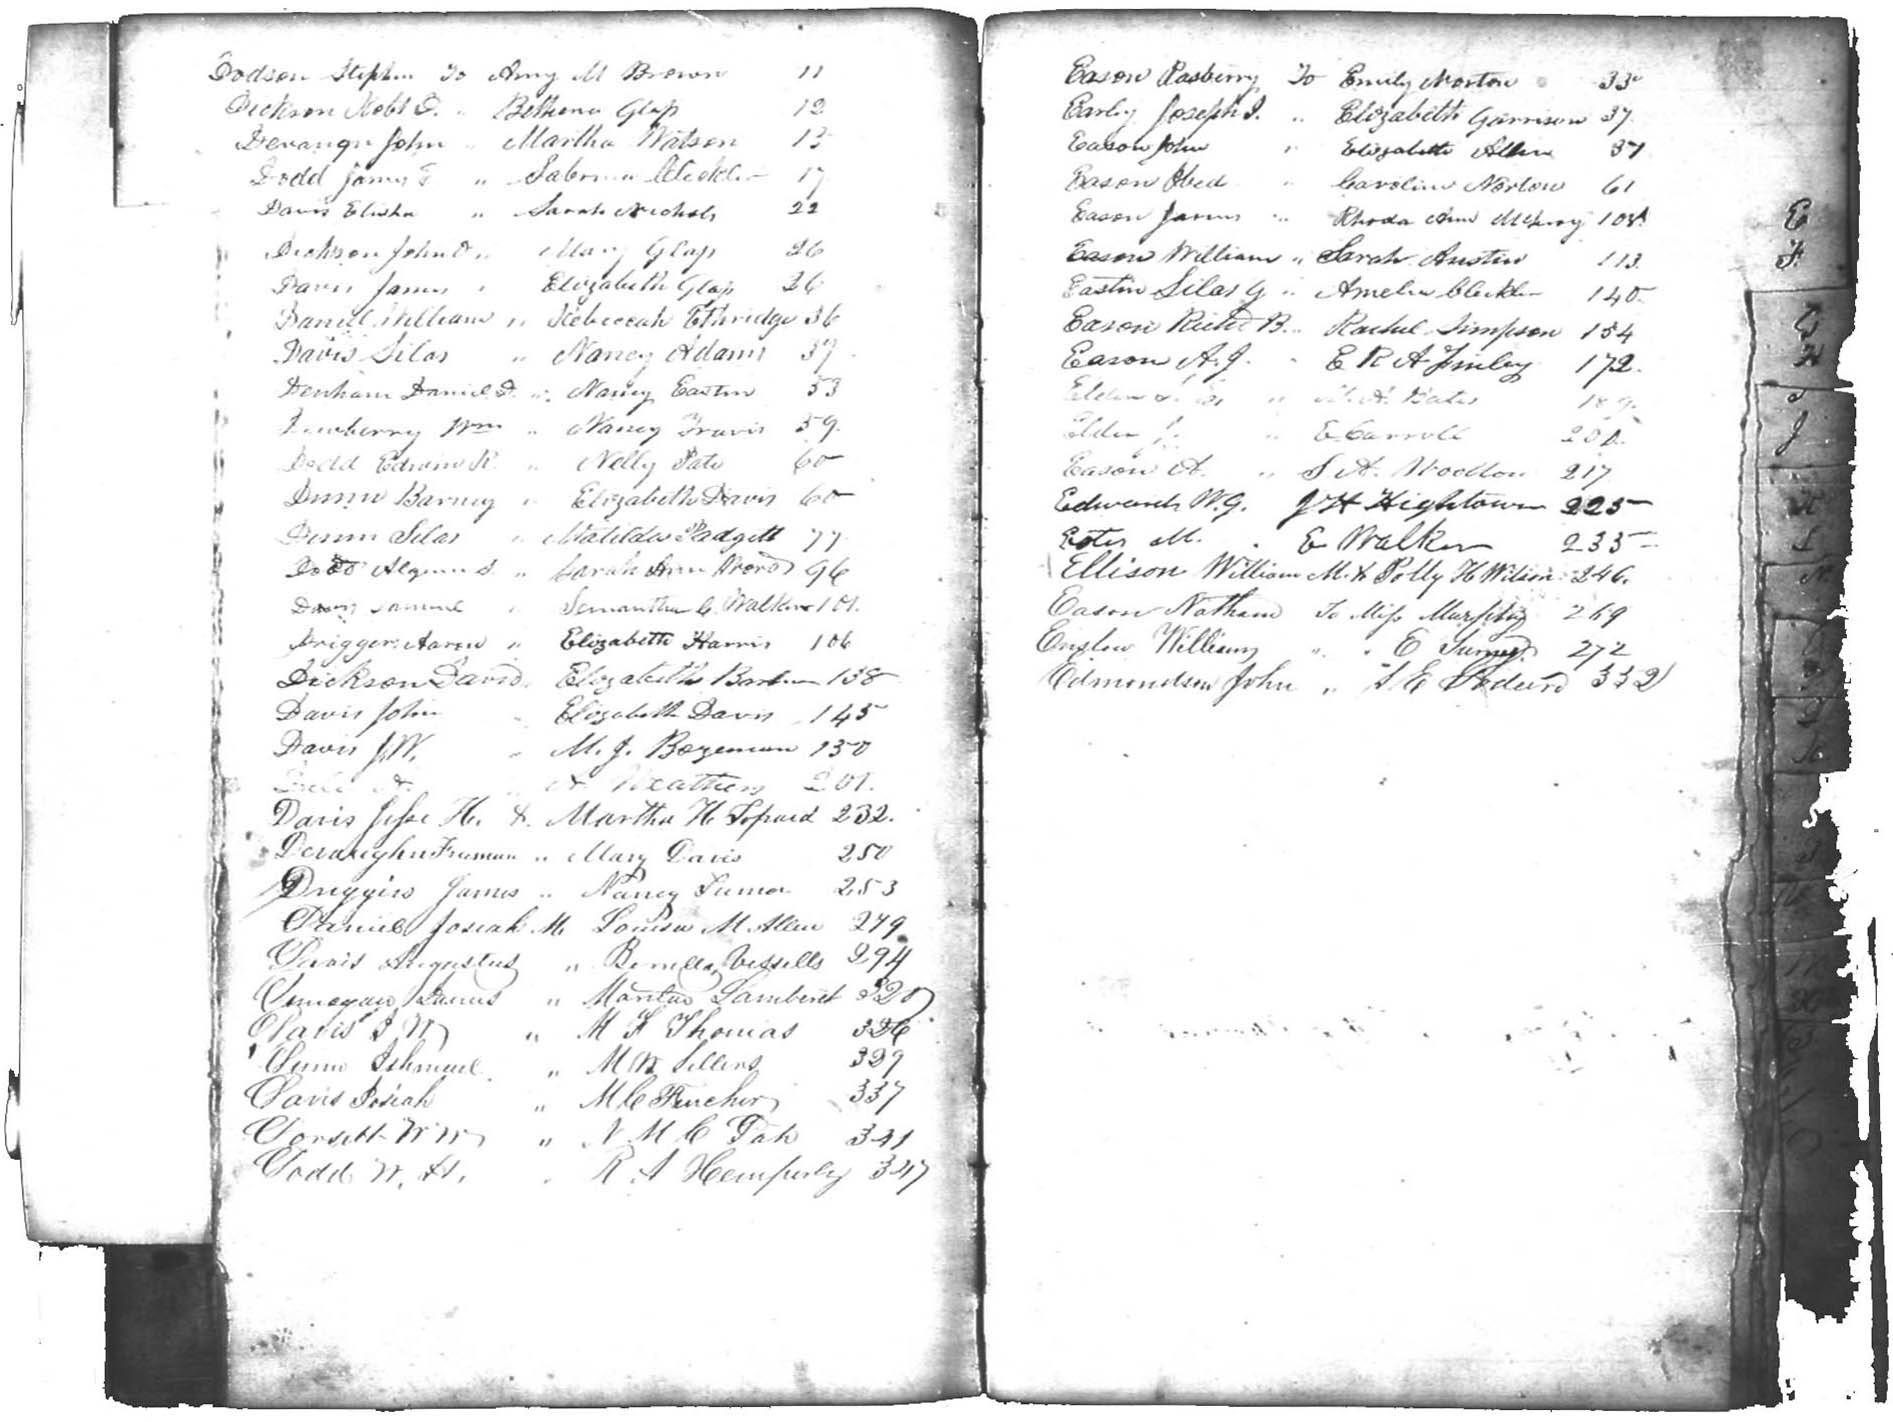 Dodson Stephen To Amy M Brown 11
Dickson Robt D. " Bethena Glass 12
Devaughn John " Martha Watson 13
Dodd James " 17
Davis Elisha " Sarah Nichols 22
Dickson John " Mary Glass 26
Davis James " Elizabeth Glass 26
Daniel William " Rebeccah Ethridge 36
Davis Silas " Nancy Adams 37
Denham Daniel D. " Nancy Eastin 53
Dewberry Wm " Nancy Travis 59
Dodd Edwin R. " Nelly Pate 60
Dunn Barney " Elizabeth Davis 60
Dunn Silas " Matilda Padgett 77
Dodd " Sarah Ann Word 96
Davis Samuel " Semantha C. Walker 101.
Driggers Aaron " Elizabeth Harris 106
Dickson David. Elizabeth 138
Davis John " Elizabeth Davis 145
Davis J.W. " M. J. Bozeman 150
A. " A Weathers 201.
Davis Jesse H. & Martha H 232.
Devaughn Freeman " Mary Davis 250
Driggers James " Nancy Turner 253
Daniel Josiah M Louisa M Allen 279
Davis Augustus " Vessells 294
" Lambert 320
Davis J W " M F Thomas 326
Dunn Ishmael " M W Sellers 329
Davis Josiah " M C Fincher 337
Dorsett W W " N M C 341
Dodd W. H. " R A Hemperly 347
Eason Rasberry To Emily Norton 33
Early Joseph J. " Elizabeth Garrison 37
Eason John " Elizabeth Allen 37
Eason Obed " Caroline Norton 61
Eason James " Rhoda Ann 108
Eason William " Sarah Austin 113
Eastin Silas G " Amelia 140
Eason Richd B. " Rachel Simpson 154
Eason A. J. " E R A Finley 172.
Elder " Bates 189.
Elder " E Carroll
Eason A. " S A. Wootton 217
Edwards W. G. J H Hightower 225
Estes M. " E Walker 235
Ellison William M. & Polly H Wilson 246.
Eason Nathan To Miss Murphy 269
Enslow William " " E 272
Edmondson John " S E 332
E
F
G
H
J
K
L